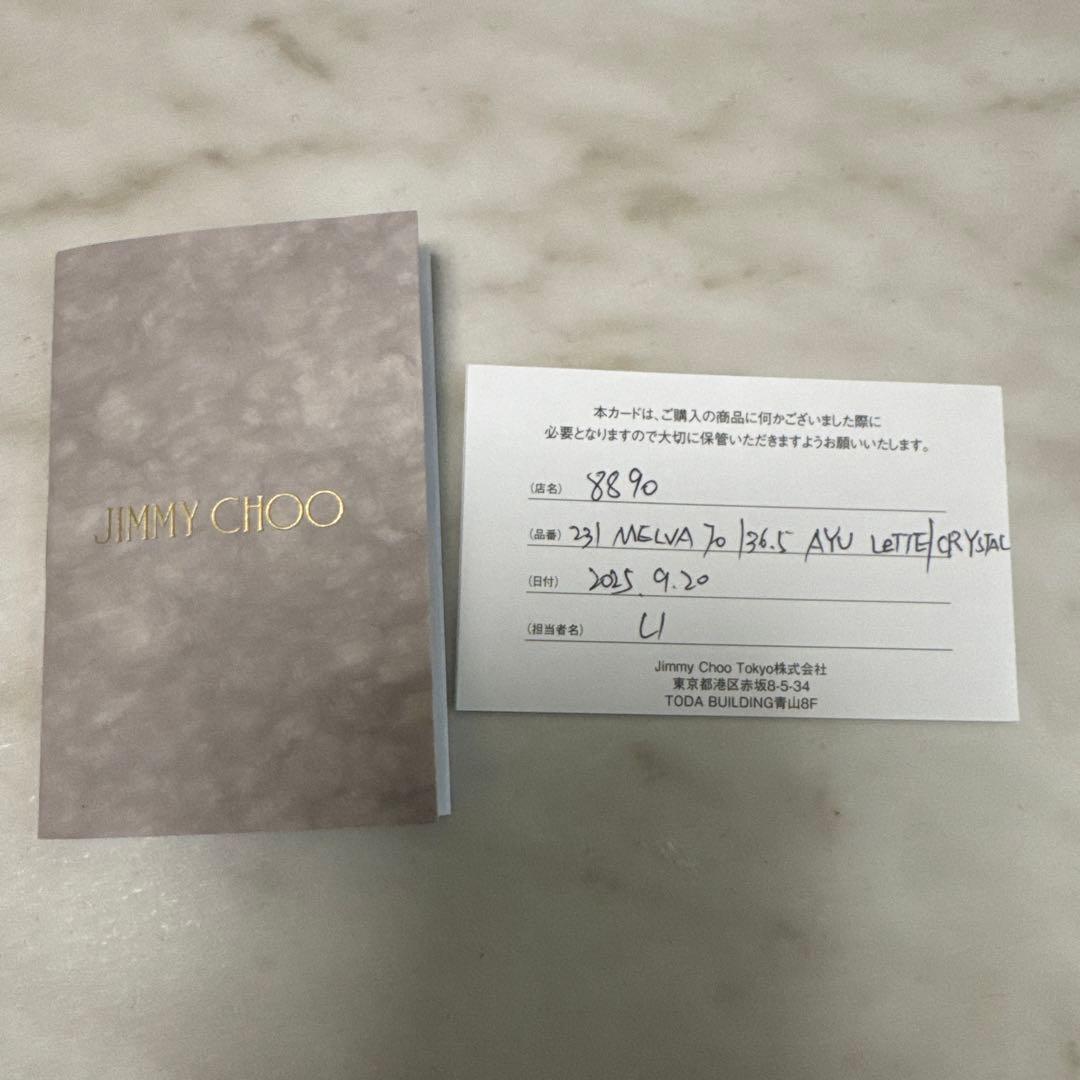 JIMMY CHOO
本カードは、ご購入の商品に何かございました際に
必要となりますので大切に保管いただきますようお願いいたします。
(店名) 8890
(品番) 231 MELVA 70 /36.5 AYU LETTE/CRYSTAL
(日付) 2025.9.20
(担当者名) LI
Jimmy Choo Tokyo株式会社
東京都港区赤坂8-5-34
TODA BUILDING青山8F